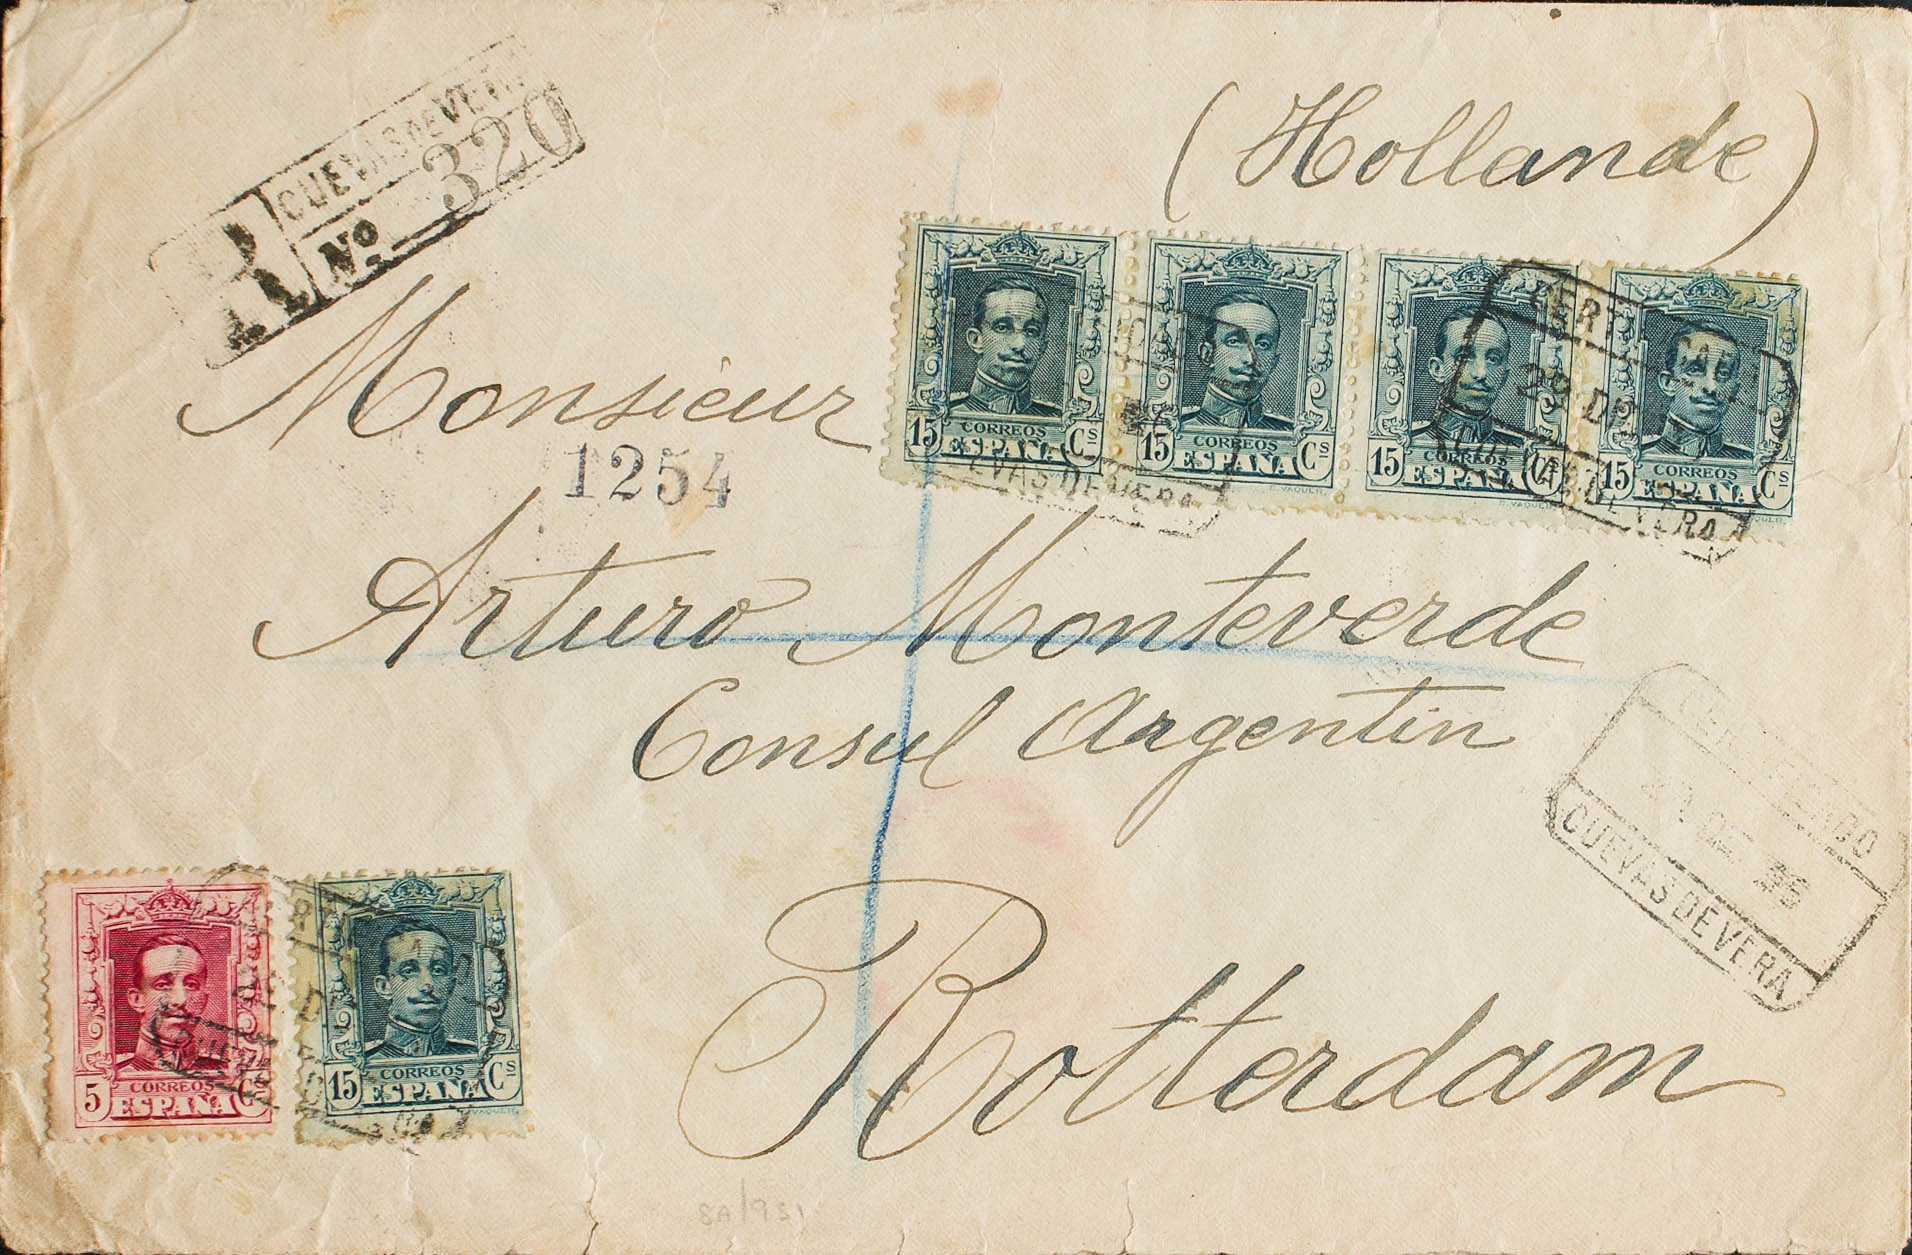 (Hollande)
R
CUEVAS DE VERA
Nº 320
Monsieur
1254
Arturo Monteverde
Consul Argentin
Rotterdam
15 CORREOS ESPAÑA Cs
15 CORREOS ESPAÑA Cs
15 CORREOS ESPAÑA Cs
15 CORREOS ESPAÑA Cs
CERTIFICADO
DIC
CUEVAS DE VERA
CERTIFICADO
CUEVAS DE VERA
5 CORREOS ESPAÑA Cs
15 CORREOS ESPAÑA Cs